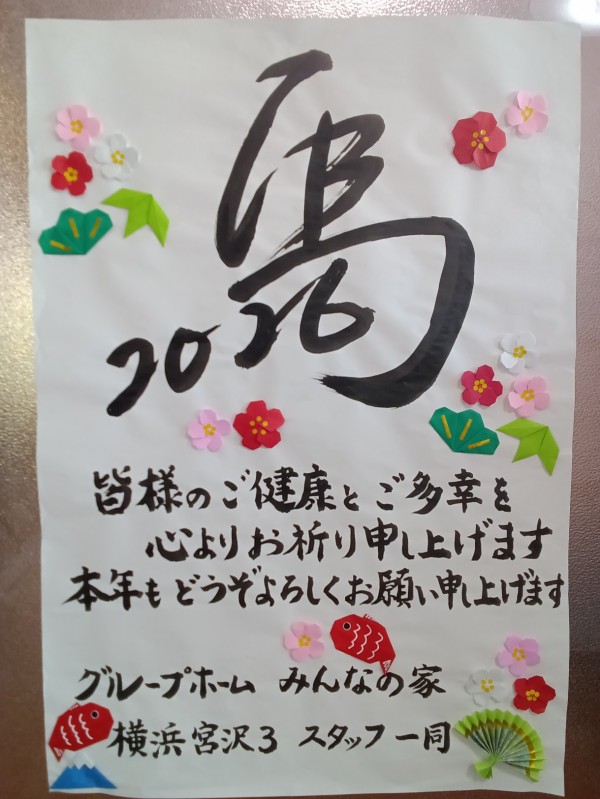 馬
2026
皆様のご健康とご多幸を
心よりお祈り申し上げます
本年もどうぞよろしくお願い申し上げます
グループホーム みんなの家
横浜宮沢3 スタッフ一同